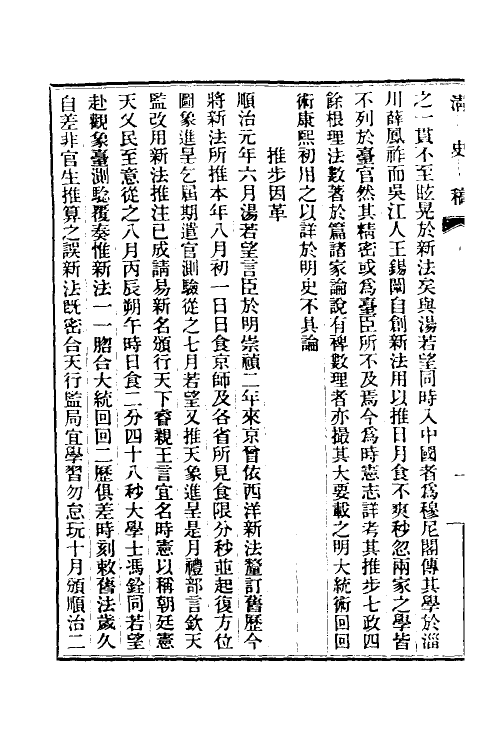 清史稿
之一貫不至眩晃於新法矣與湯若望同時入中國者爲穆尼閣傳其學於淄
川薛鳳祚而吳江人王錫闡自創新法用以推日月食不爽秒忽兩家之學皆
不列於臺官然其精密或爲臺臣所不及焉今爲時憲志詳考其推步七政四
餘根理法數著於篇諸家論說有裨數理者亦撮其大要載之明大統術回回
術康熙初用之以詳於明史不具論
推步因革
順治元年六月湯若望言臣於明崇禎二年來京曾依西洋新法釐訂舊歷今
將新法所推本年八月初一日日食京師及各省所見食限分秒並起復方位
圖象進呈乞屆期遣官測驗從之七月若望又推天象進呈是月禮部言欽天
監改用新法推注已成請易新名頒行天下睿親王言宜名時憲以稱朝廷憲
天乂民至意從之八月丙辰朔午時日食二分四十八秒大學士馮銓同若望
赴觀象臺測驗覆奏惟新法一一脗合大統回回二歷俱差時刻敕舊法歲久
自差非官生推算之誤新法旣密合天行監局宜學習勿怠玩十月頒順治二
一